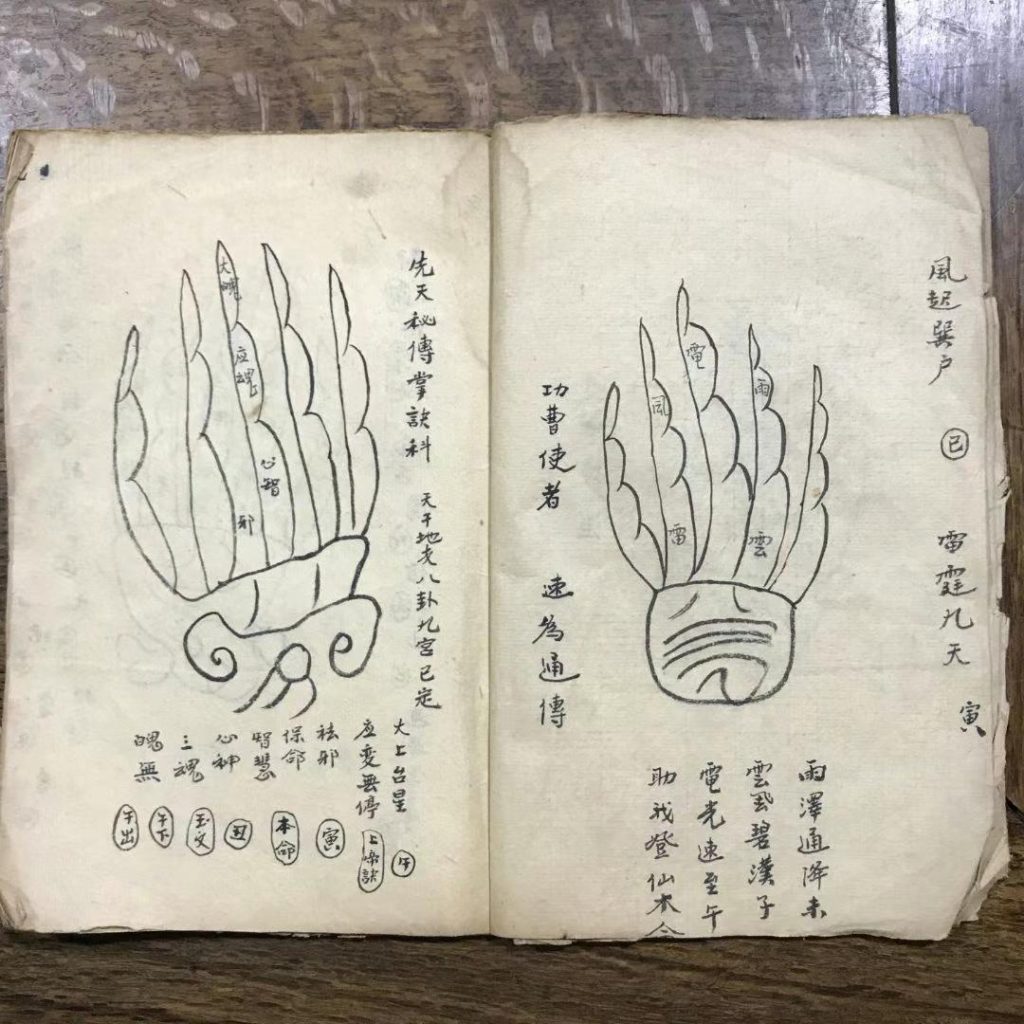 風起巽户 巳 雷霆九天 寅
雨澤通降未
雲風碧漢子
電光速至午
助我登仙本命
電
雨
風
雷
雲
功曹使者 速為通傳
先天秘傳掌訣科 天干地支八卦九宮已定
大魄
应魂
心智
邪
大上台星 午
应变無停
祛邪 寅
保命 本命
智慧 丑
心神 玉文
三魂 午下
魄無 午出